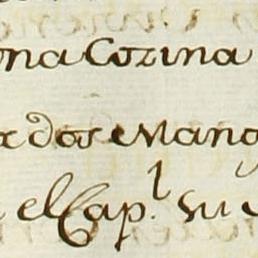 ona Cozina
dos e Mang
el Cap.l su